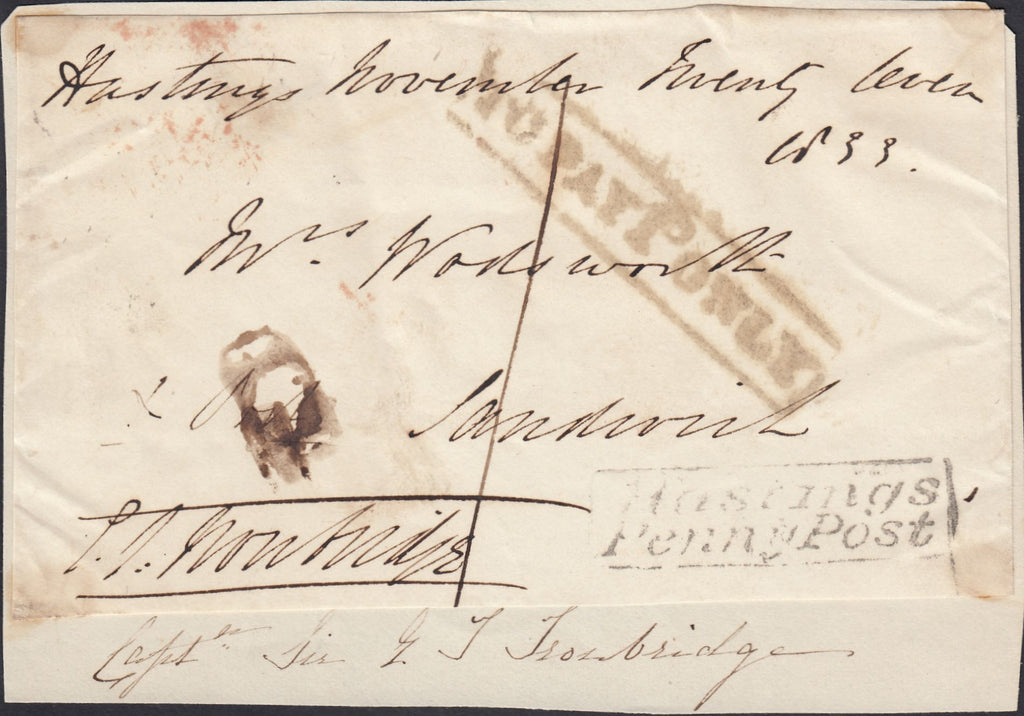 Hastings November Twenty Seven
1833.
Mrs. Wodsworth
Sandwich
TO PAY 1D ONLY
Hastings
Penny Post
Captn Sir E T Troubridge